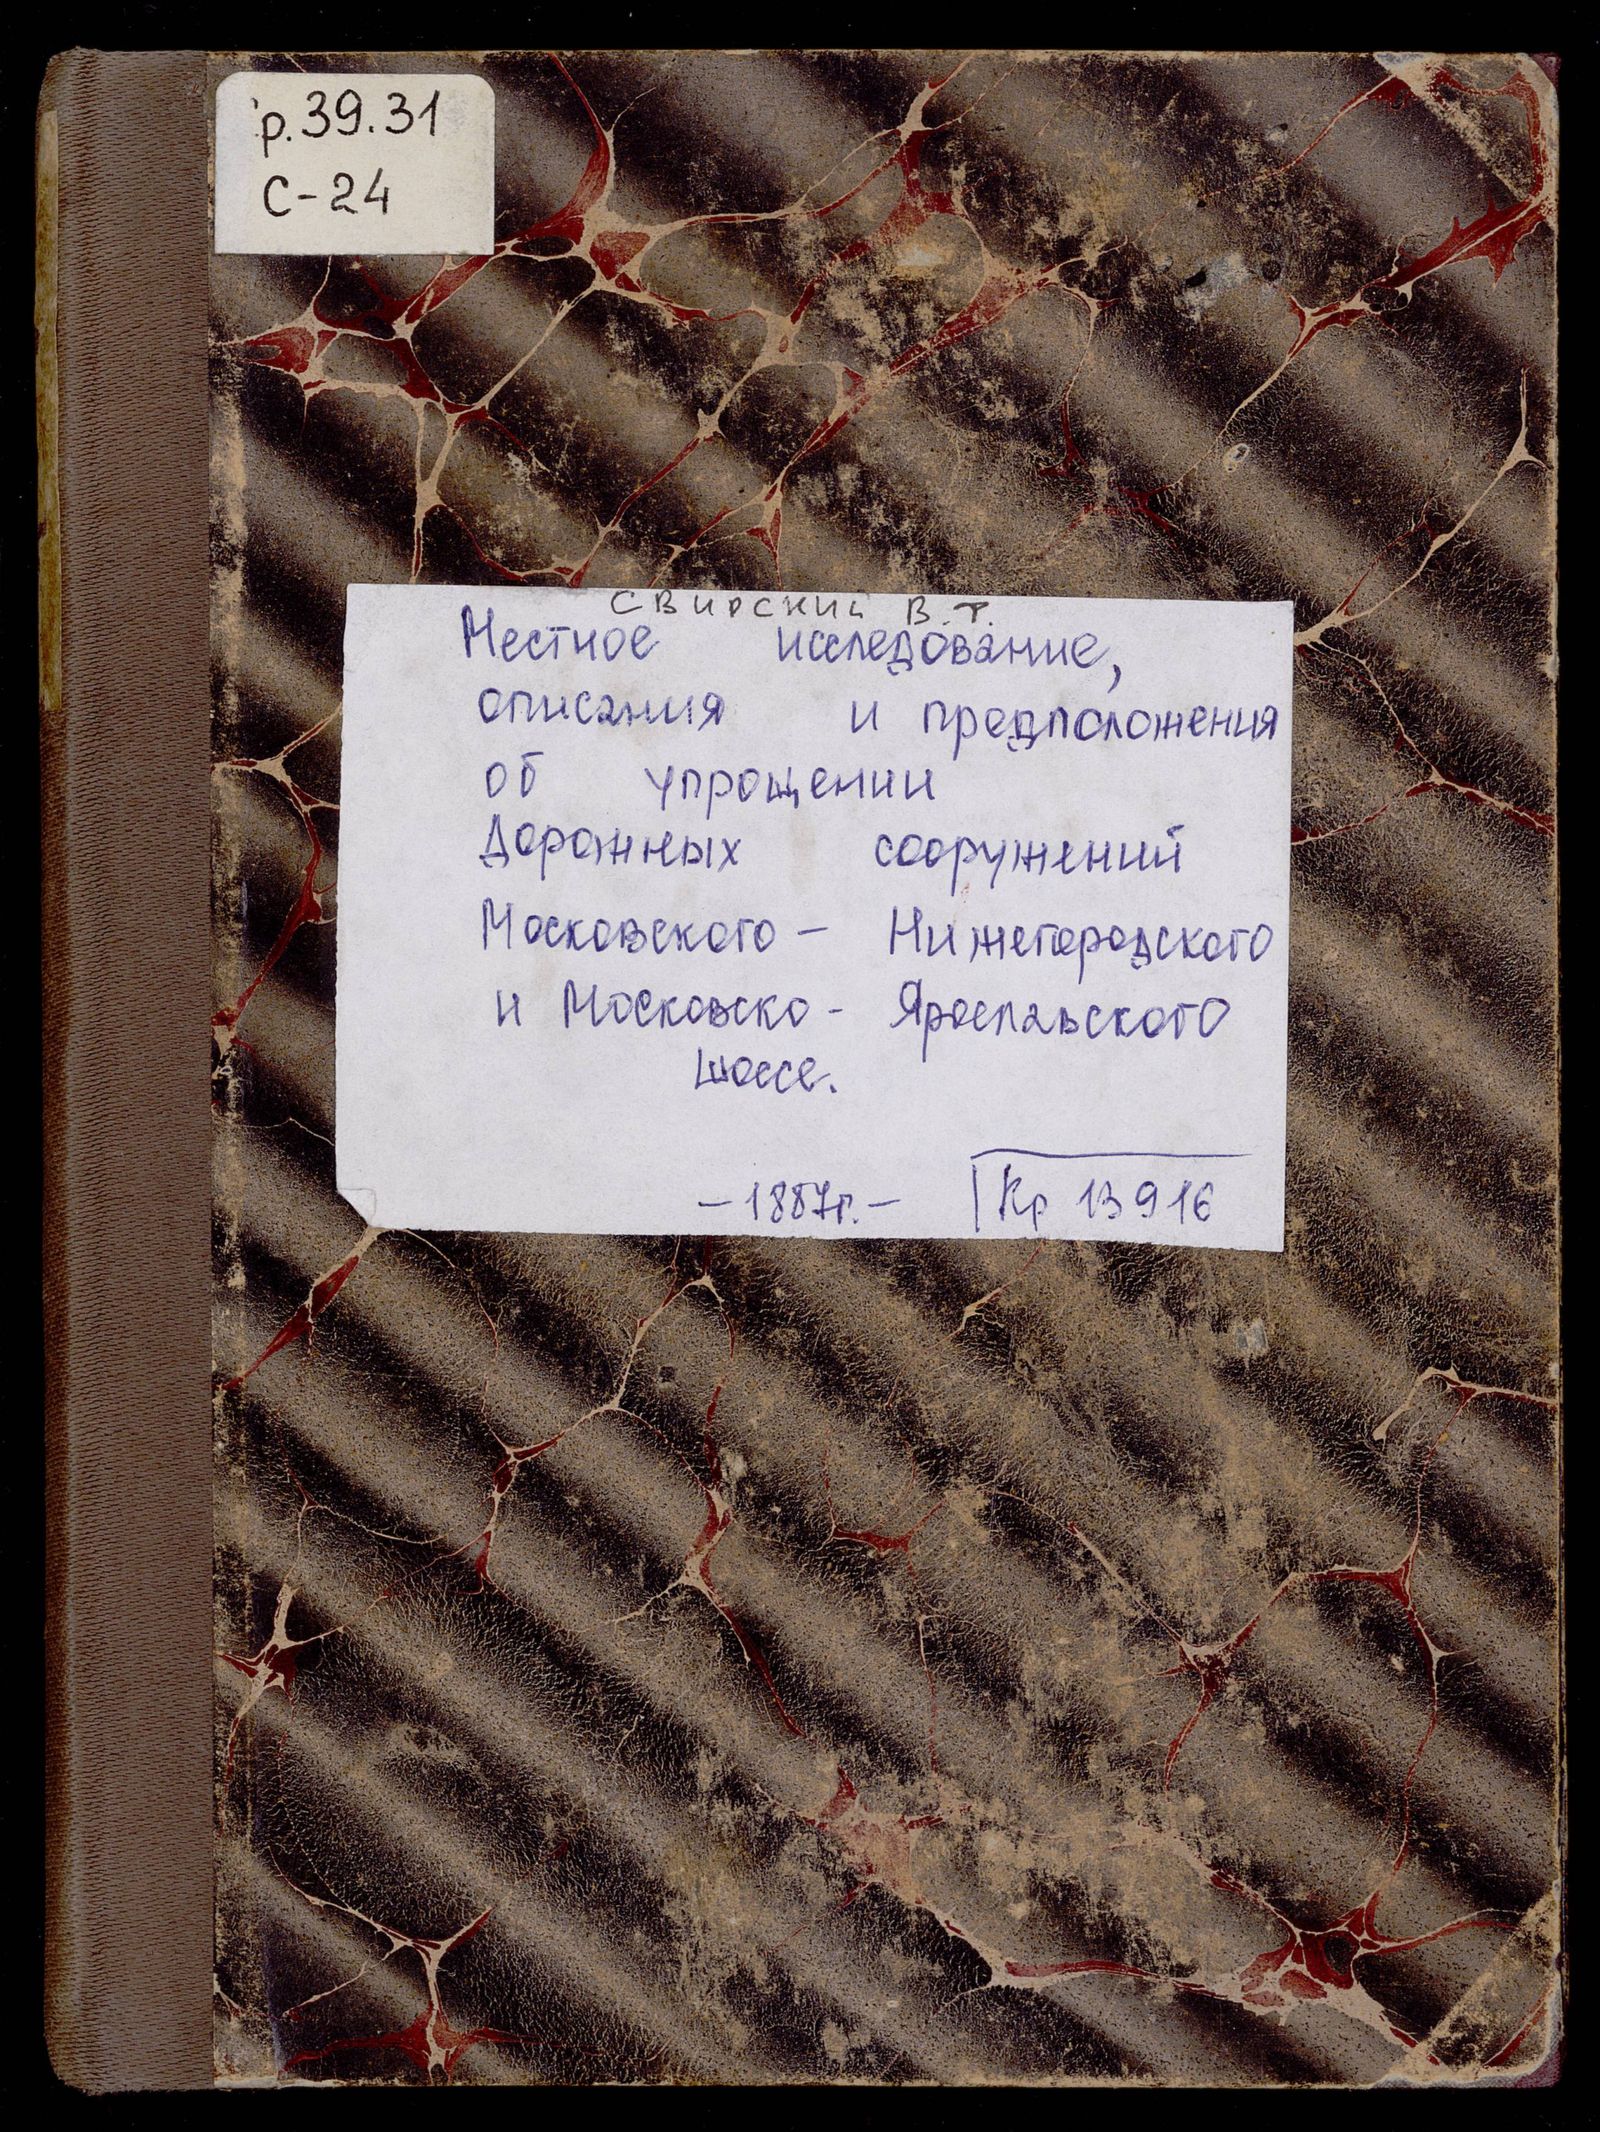 р.39.31
С-24
Свирский В.Т.
Местное исследование,
описания и предположения
об упрощении
дорожных сооружений
Московского - Нижегородского
и Московско - Ярославского
шоссе.
- 1887г. - Кр 13916